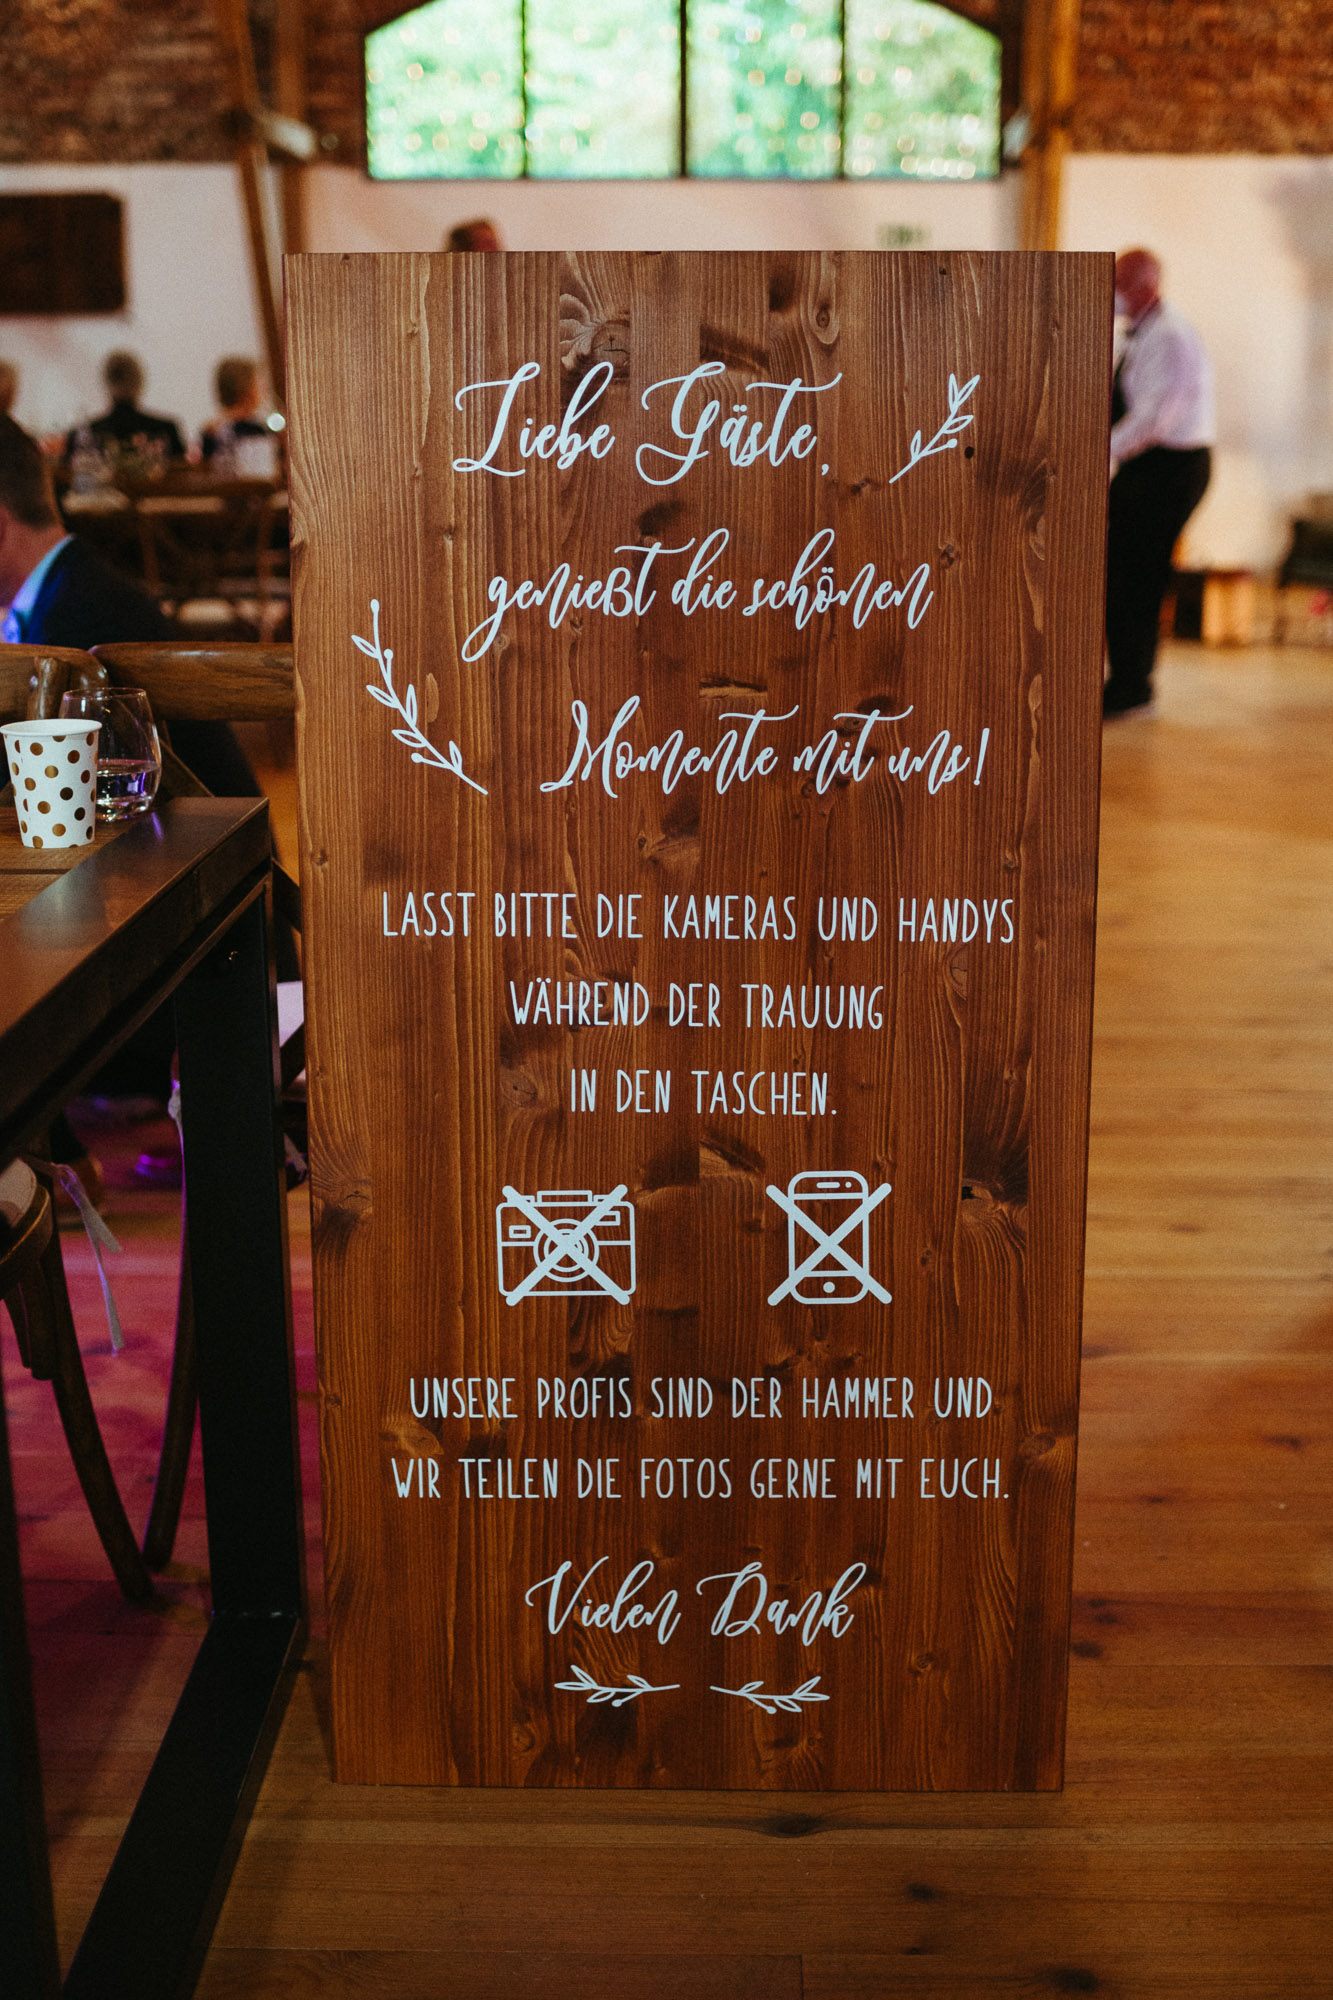 Liebe Gäste,
genießt die schönen
Momente mit uns!
LASST BITTE DIE KAMERAS UND HANDYS
WÄHREND DER TRAUUNG
IN DEN TASCHEN.
UNSERE PROFIS SIND DER HAMMER UND
WIR TEILEN DIE FOTOS GERNE MIT EUCH.
Vielen Dank